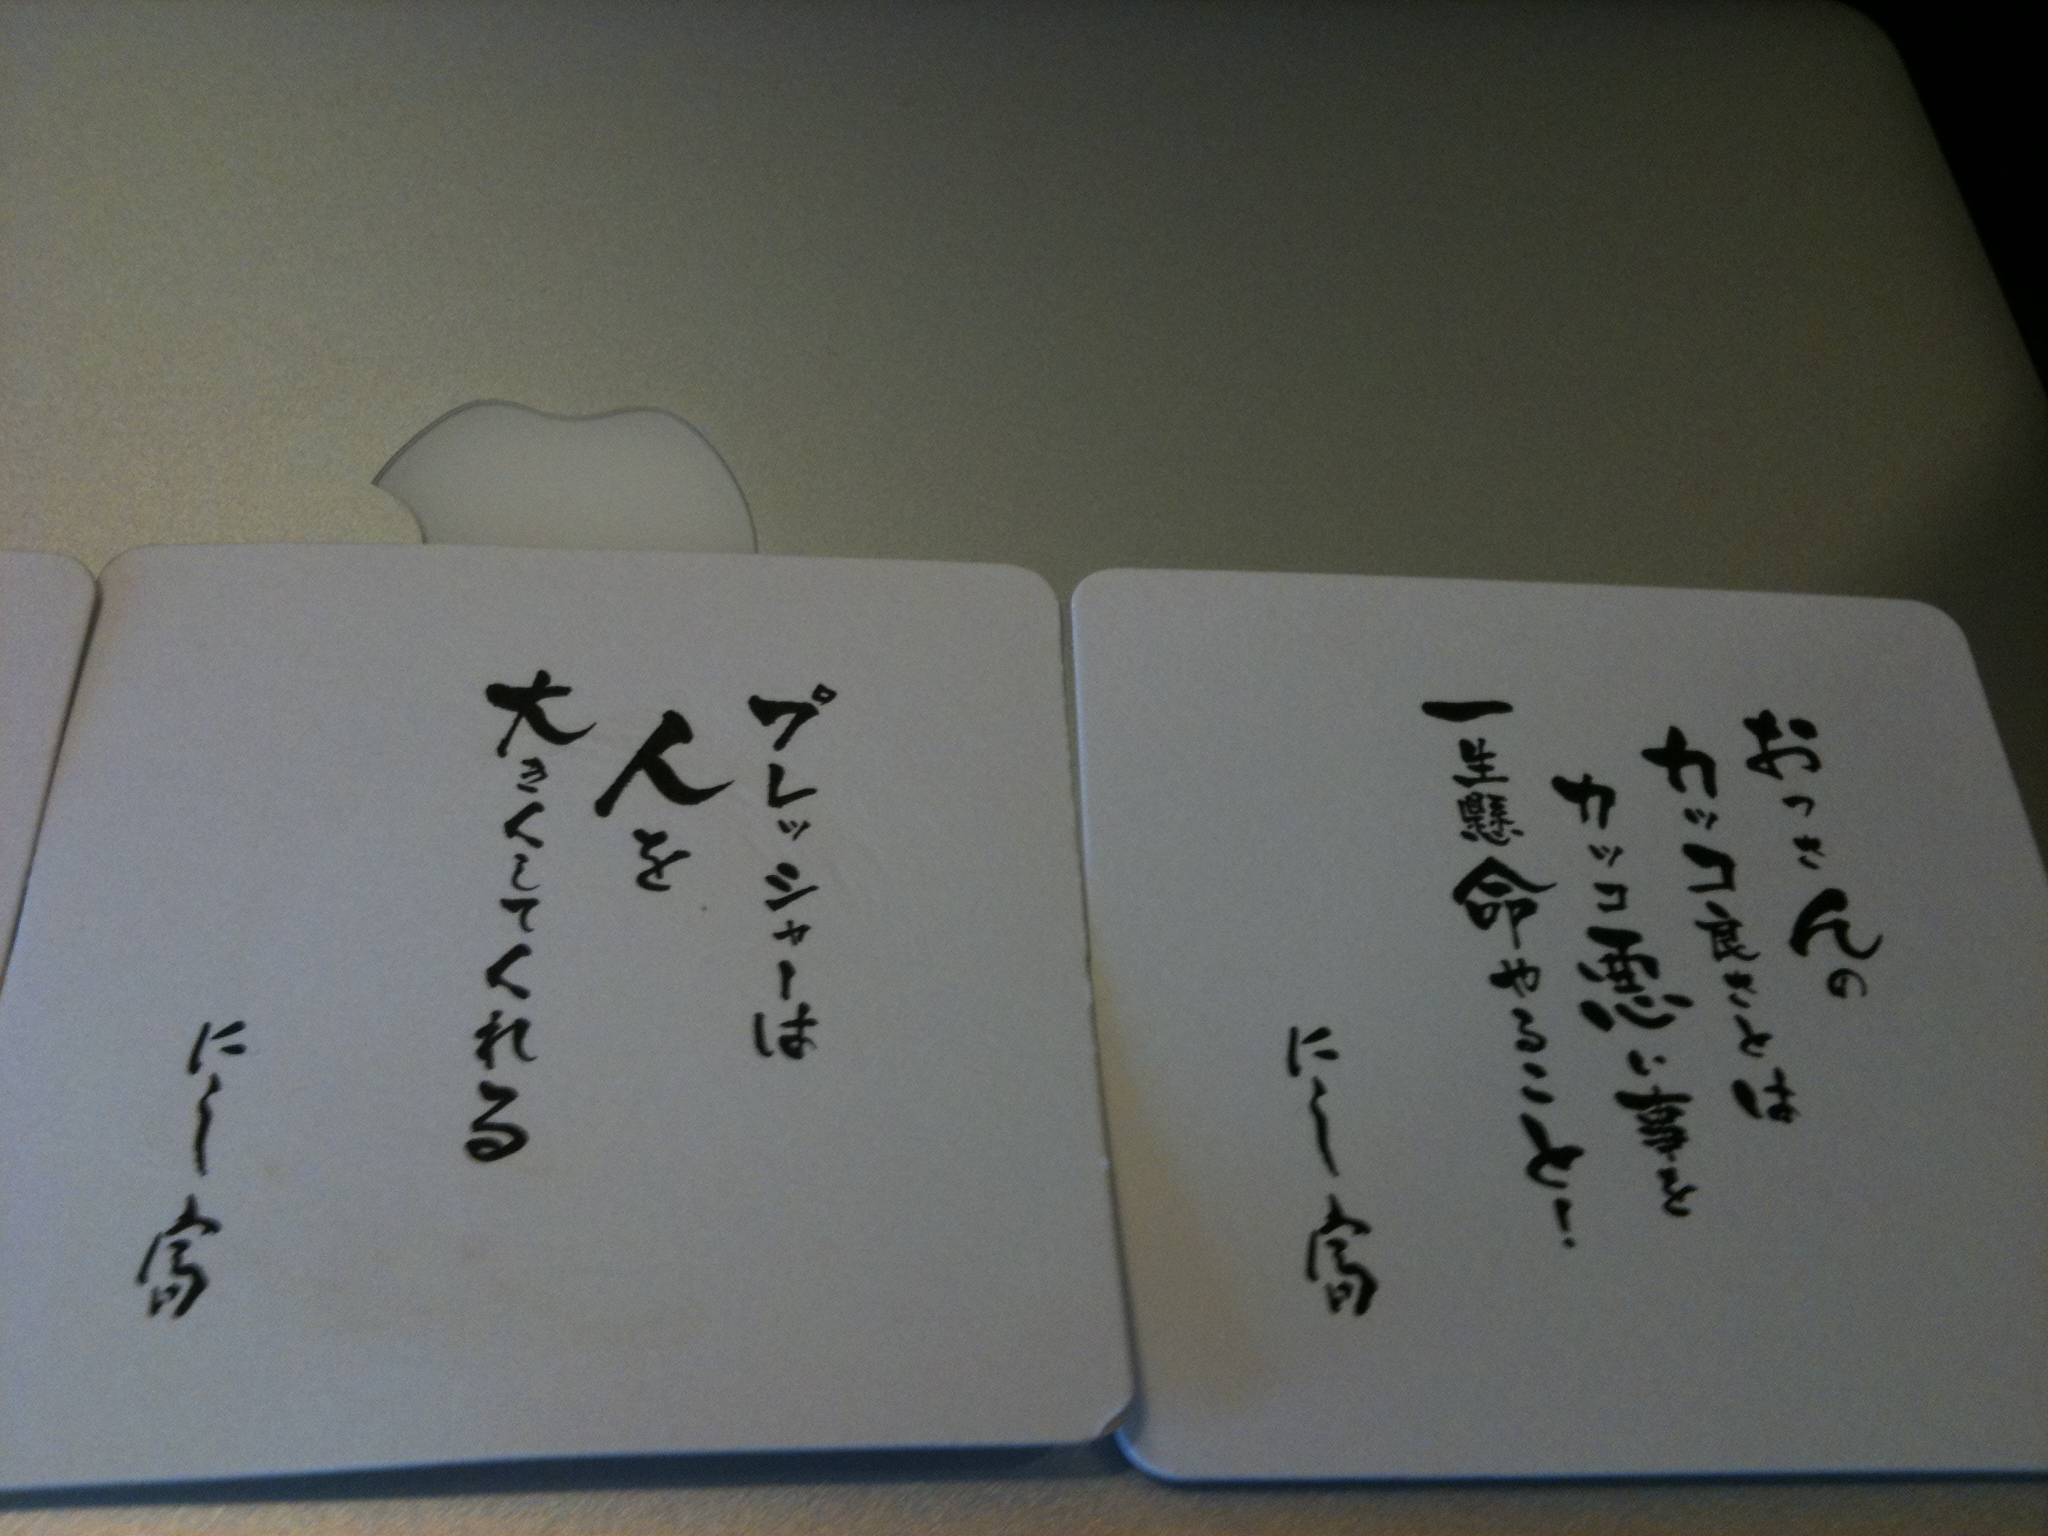 おっさんの
カッコ良さとは
カッコ悪い事を
一生懸命やること!
にしー富
プレッシャーは
人を
大きくしてくれる
にしー富